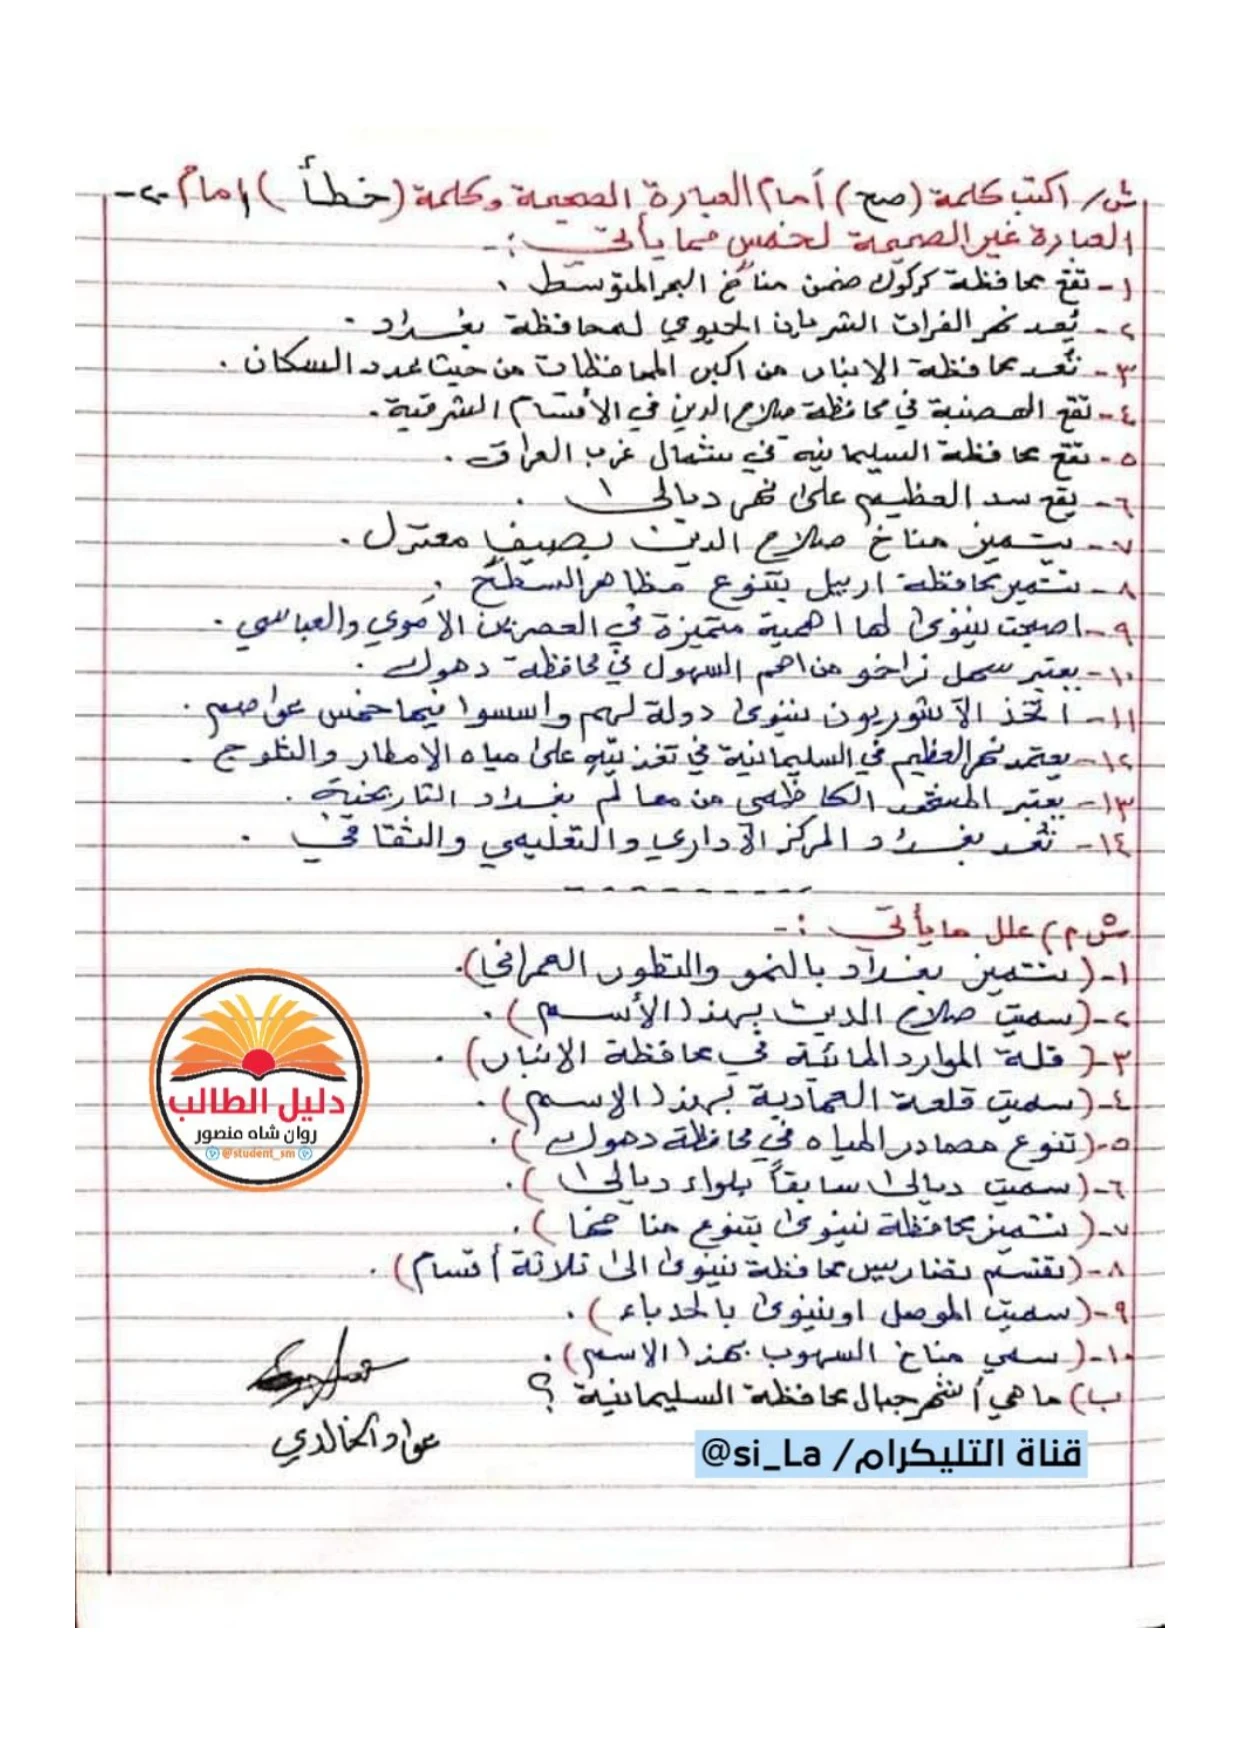 س/ اكتب كلمة (صح) أمام العبارة الصحيحة وكلمة (خطأ) امام -٢-
العبارة غير الصحيحة لخمس مما يأتي :-
١- تقع محافظة كركوك ضمن مناخ البحر المتوسط .
٢- يُعد نهر الفرات الشريان الحيوي لمحافظة بغداد .
٣- تُعد محافظة الانبار من اكبر المحافظات من حيث عدد السكان .
٤- تقع الهضبة في محافظة صلاح الدين في الأقسام الشرقية .
٥- تقع محافظة السليمانية في شمال غرب العراق .
٦- يقع سد العظيم على نهر ديالى .
٧- يتميز مناخ صلاح الدين بصيف معتدل .
٨- تتميز محافظة اربيل بتنوع مظاهر السطح .
٩- اصبحت نينوى لها اهمية متميزة في العصرين الأموي والعباسي .
١٠- يعتبر سهل زاخو من اهم السهول في محافظة دهوك .
١١- اتخذ الآشوريون نينوى دولة لهم واسسوا فيما خمس عواصم .
١٢- يعتمد نهر العظيم في السليمانية في تغذيته على مياه الامطار والثلوج .
١٣- يعتبر المشهد الكاظمي من معالم بغداد التاريخية .
١٤- تُعد بغداد المركز الاداري والتعليمي والثقافي .
س٢) علل ما يأتي :-
١- (تتميز بغداد بالنمو والتطور العمراني).
٢- (سميت صلاح الدين بهذا الأسم) .
٣- (قلة الموارد المائية في محافظة الانبار) .
٤- (سميت قلعة العمادية بهذا الاسم) .
٥- (تنوع مصادر المياه في محافظة دهوك) .
٦- (سميت ديالى سابقاً بلواء ديالى) .
٧- (تتميز محافظة نينوى بتنوع مناخها) .
٨- (تقسم تضاريس محافظة نينوى الى ثلاثة أقسام) .
٩- (سميت الموصل او نينوى بالحدباء) .
١٠- (سمي مناخ السهوب بهذا الاسم) .
ب) ما هي أشهر جبال محافظة السليمانية ؟
عواد الخالدي
قناة التليكرام/ @si_La
دليل الطالب
روان شاه منصور
@student_sm